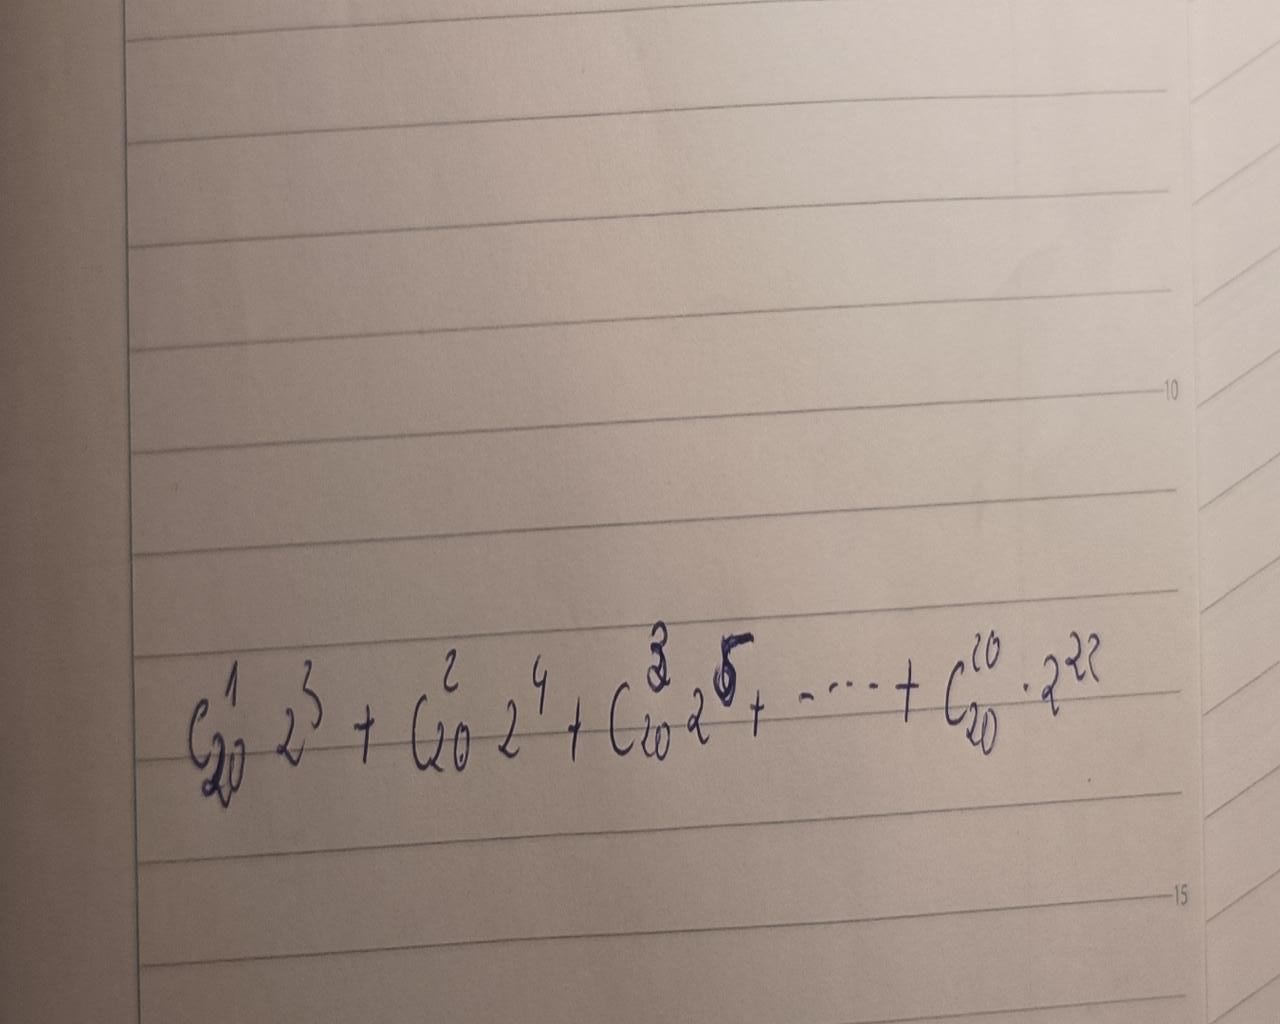 10
C₂₀¹ 2³ + C₂₀² 2⁴ + C₂₀³ 2⁵ + ---- + C₂₀²⁰ · 2²²
15